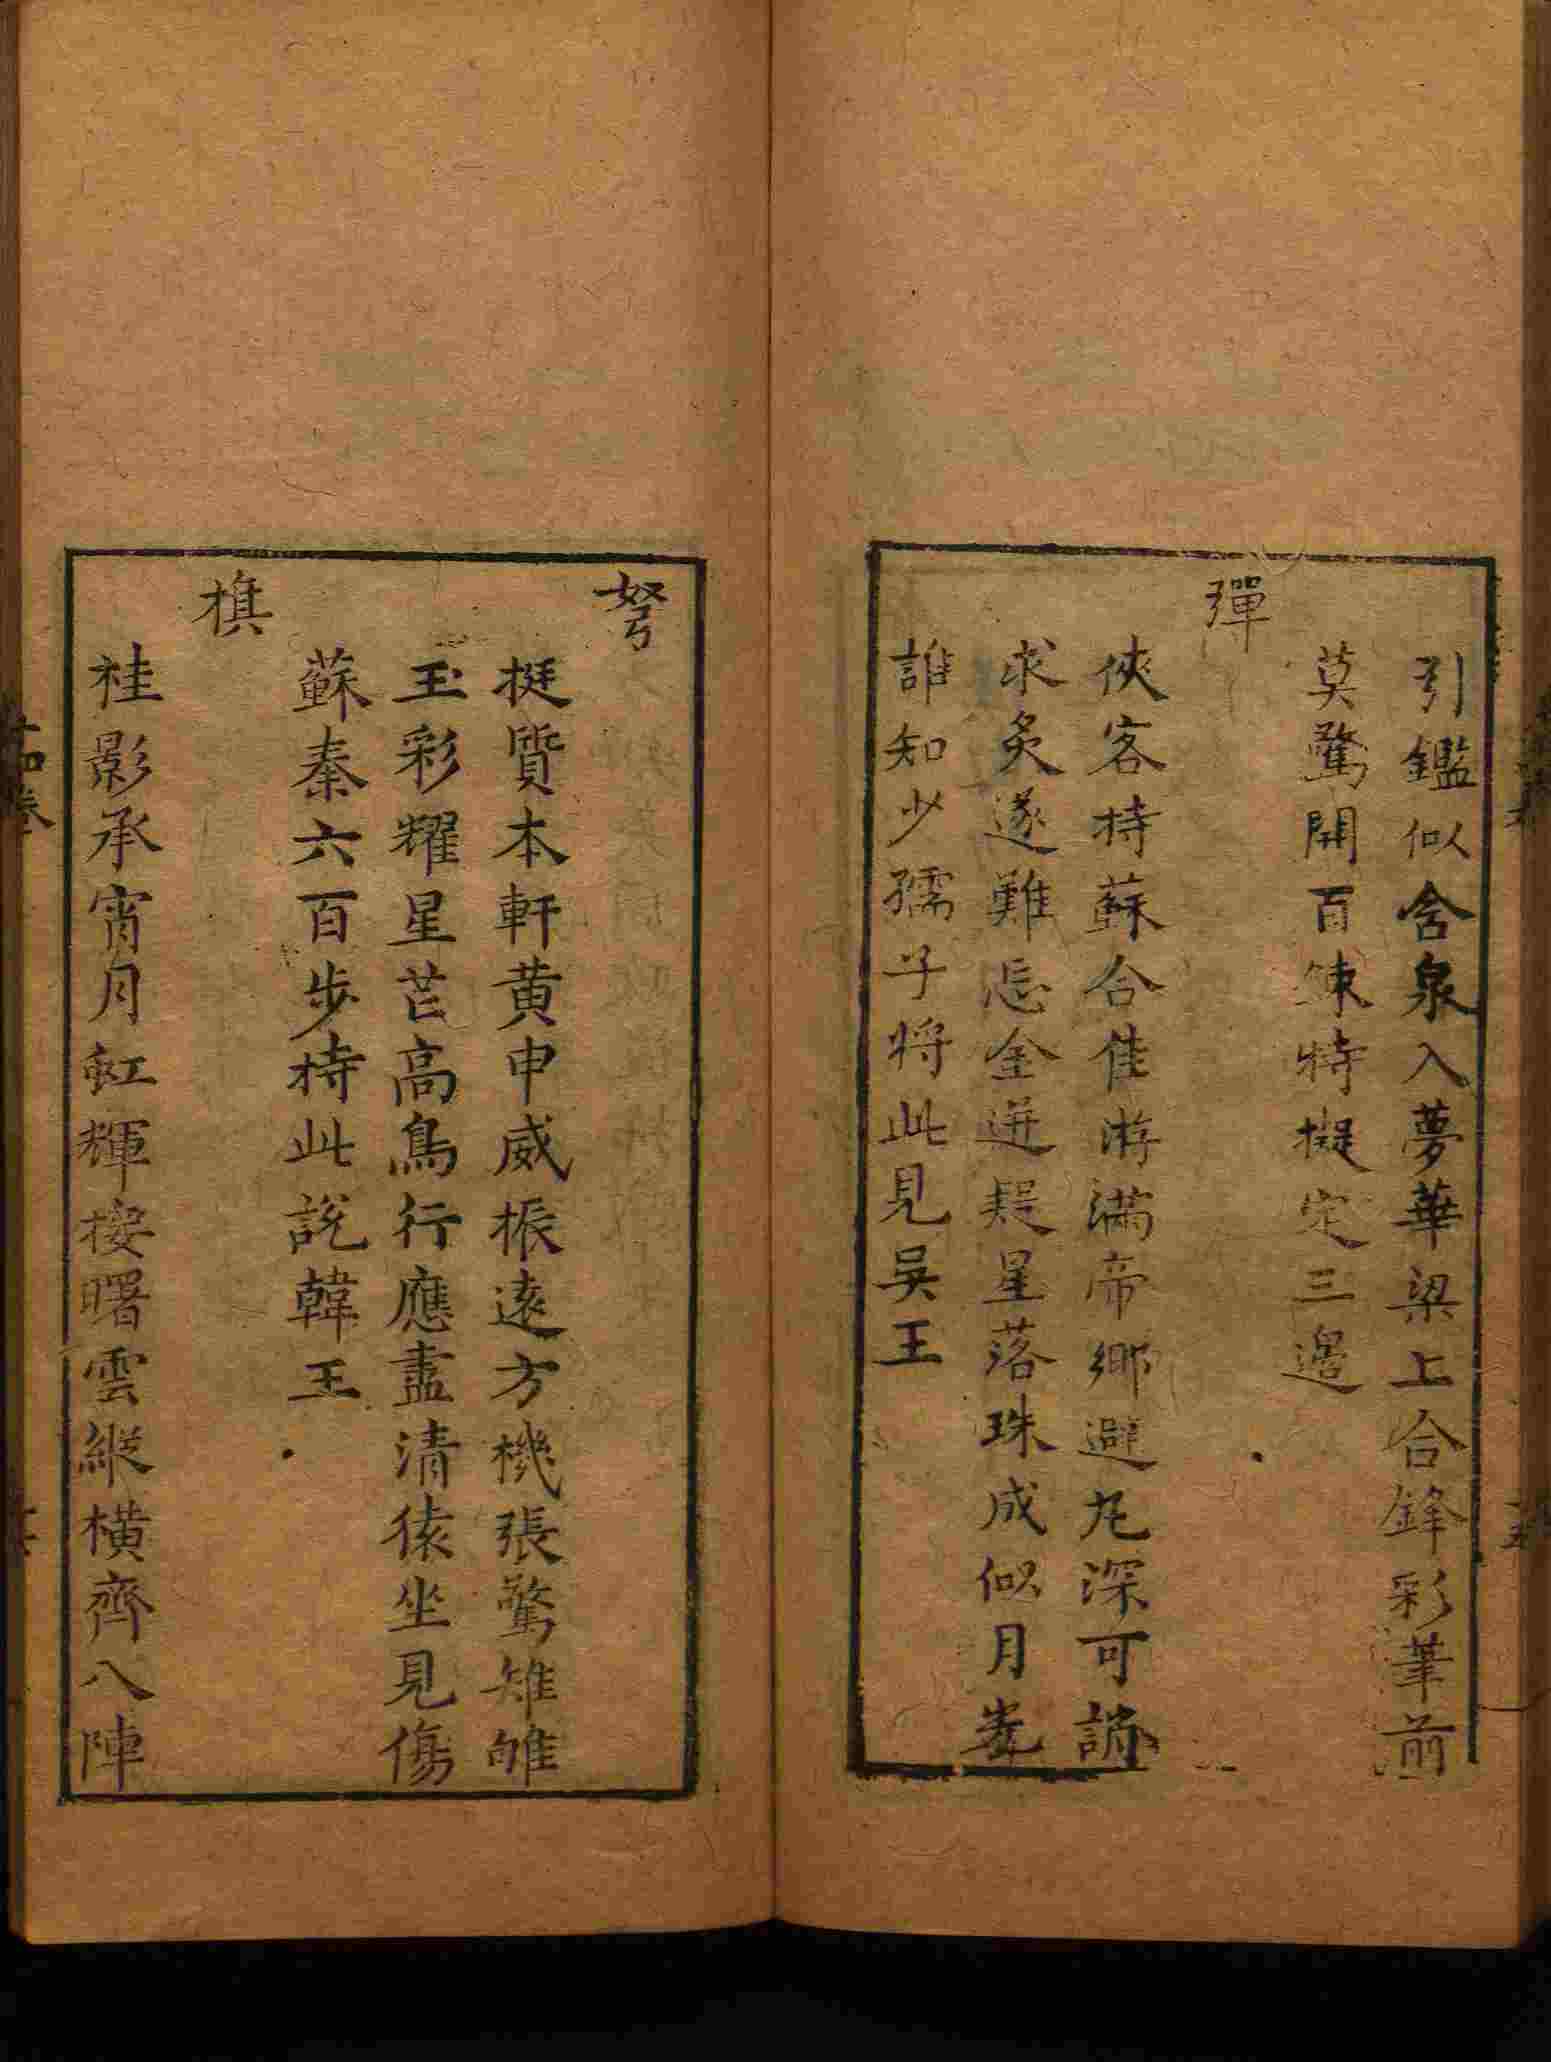 引鑑似含泉入夢華梁上合鋒彩筆前
莫驚開百鍊特擬定三邊
彈
俠客持蘇合佳游滿帝鄉避丸深可誚
求炙遂難忘金迸疑星落珠成似月光
誰知少孺子將此見吳王
弩
挺質本軒黄申威振遠方機張驚雉雊
玉彩耀星芒高鳥行應盡清猿坐見傷
蘇秦六百步持此説韓王
旗
桂影承宵月虹輝接曙雲縱横齊八陣